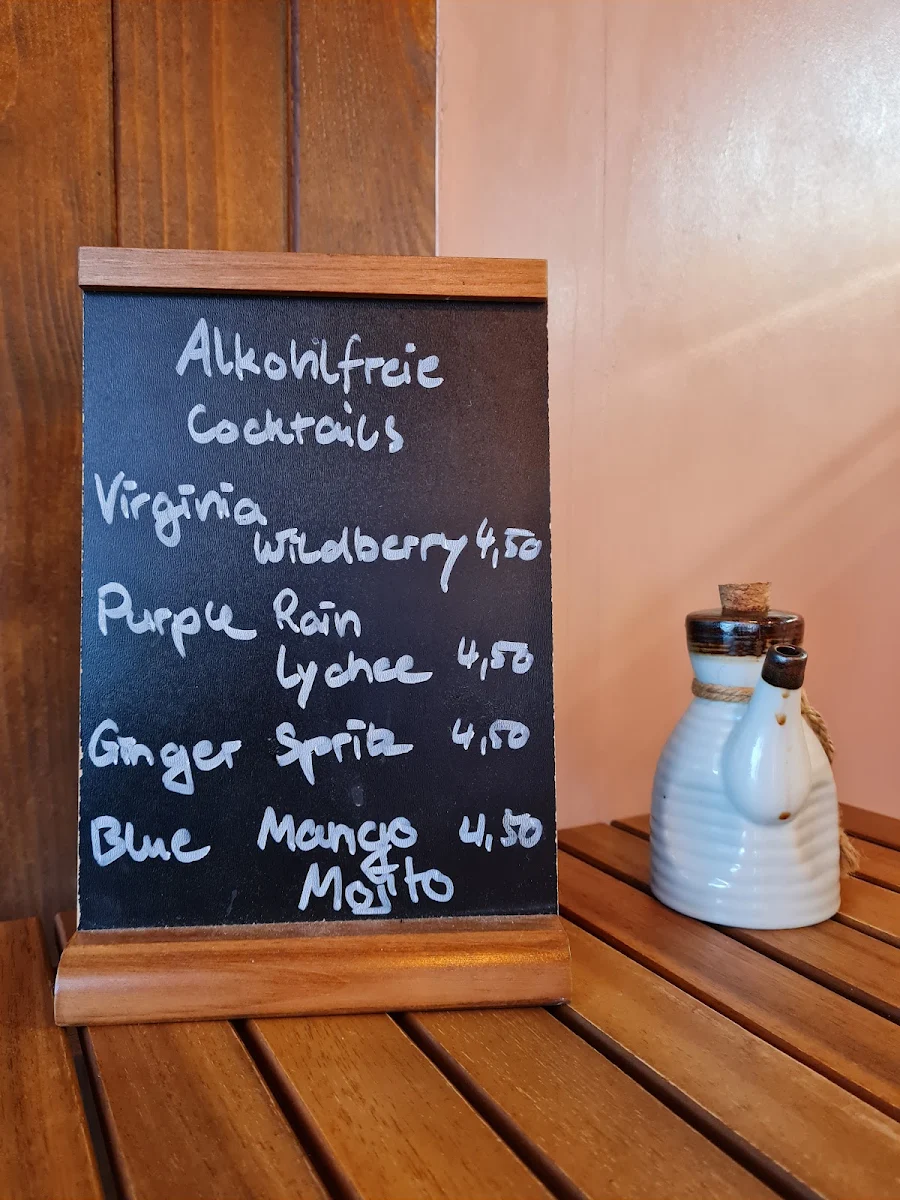 Alkohlfreie
Cocktails
Virginia
Wildberry 4,50
Purple Rain
Lychee 4,50
Ginger Spritz 4,50
Blue Mango 4,50
Mojito